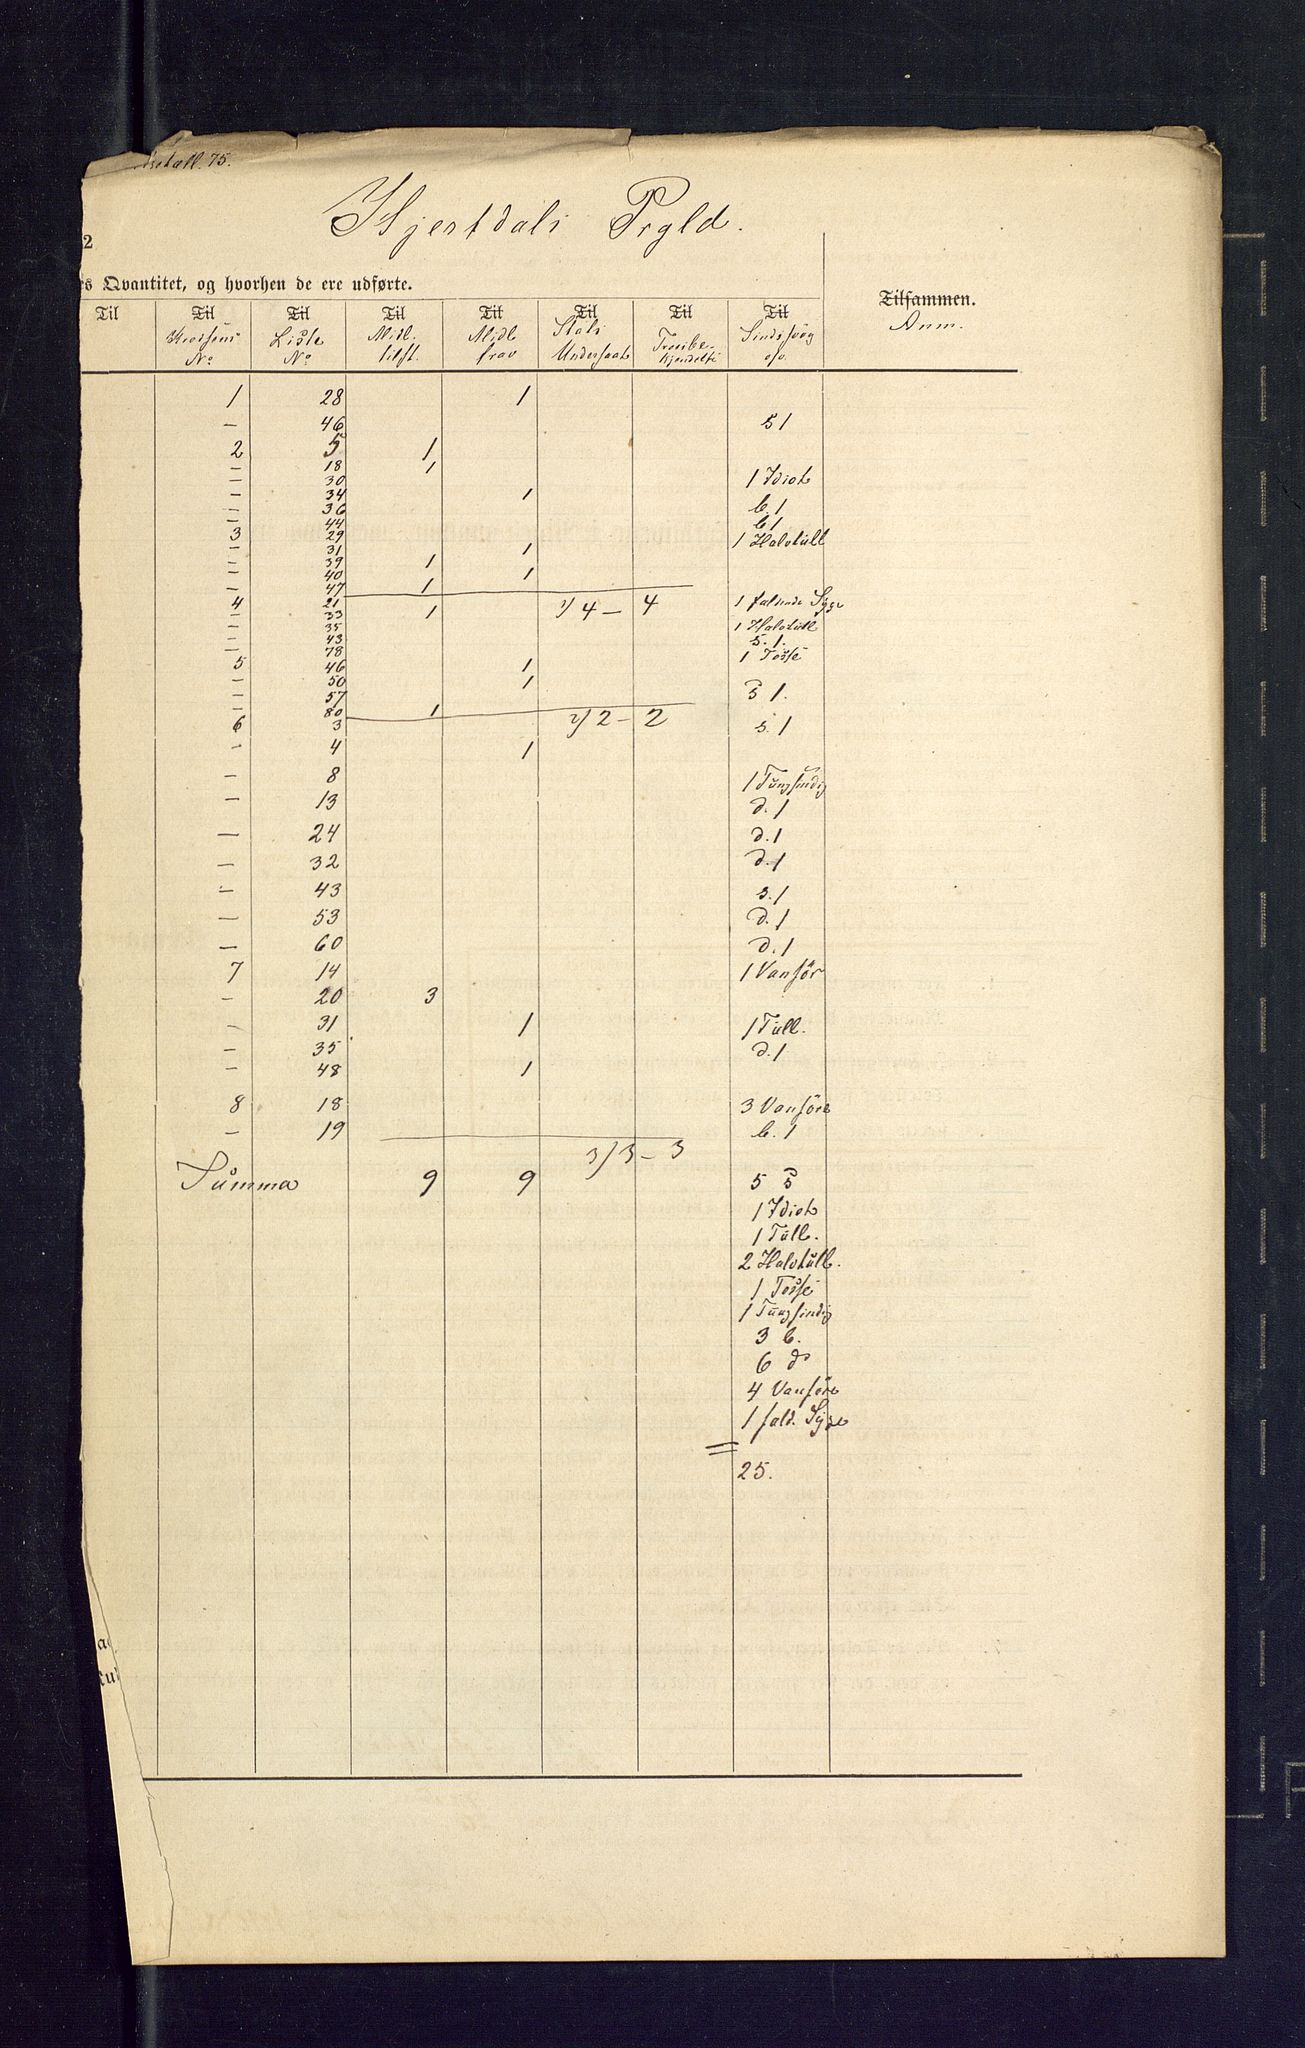 tall. 75.
Hjertdals Prgld.
2
s Qvantitet, og hvorhen de ere udførte.
Til Til Til Til Til Til Til Til Tilsammen.
Kredsens No Liste No Midl. tilst. Midl frav Stats Undersaat Trosbekjendelse Sindssvag o.s.v. Anm.
1 28 1
— 46 s 1
2 5 1
— 18 1
— 30 1 Idiot
— 34 1
— 36 b. 1
— 44 b 1
3 29 1 Halvtull
— 31 1
— 39 1
— 40 1
— 47 1
4 21 1) 4 — 4 1 faldende Syge
— 33 1
— 35 1 Halvtull
— 43 s. 1.
— 78 1 Tosse
5 46 1
— 50 1
— 57 s 1.
— 80 1
6 3 2) 2 — 2 s. 1
— 4 1
— 8 1 Tungsindig
— 13 d. 1
— 24 d. 1
— 32 d. 1
— 43 s. 1
— 53 d. 1
— 60 d. 1
7 14 1 Vanför
— 20 3
— 31 1 1 Tull.
— 35 d. 1
— 48 1
8 18 3 Vanföre
— 19 b. 1
3) 3 — 3
Summa 9 9 5 s
1 Idiot
1 Tull.
2 Halvtull.
1 Tosse
1 Tungsindig
3 b.
6 d
4 Vanföre
1 fald. Syge
25.